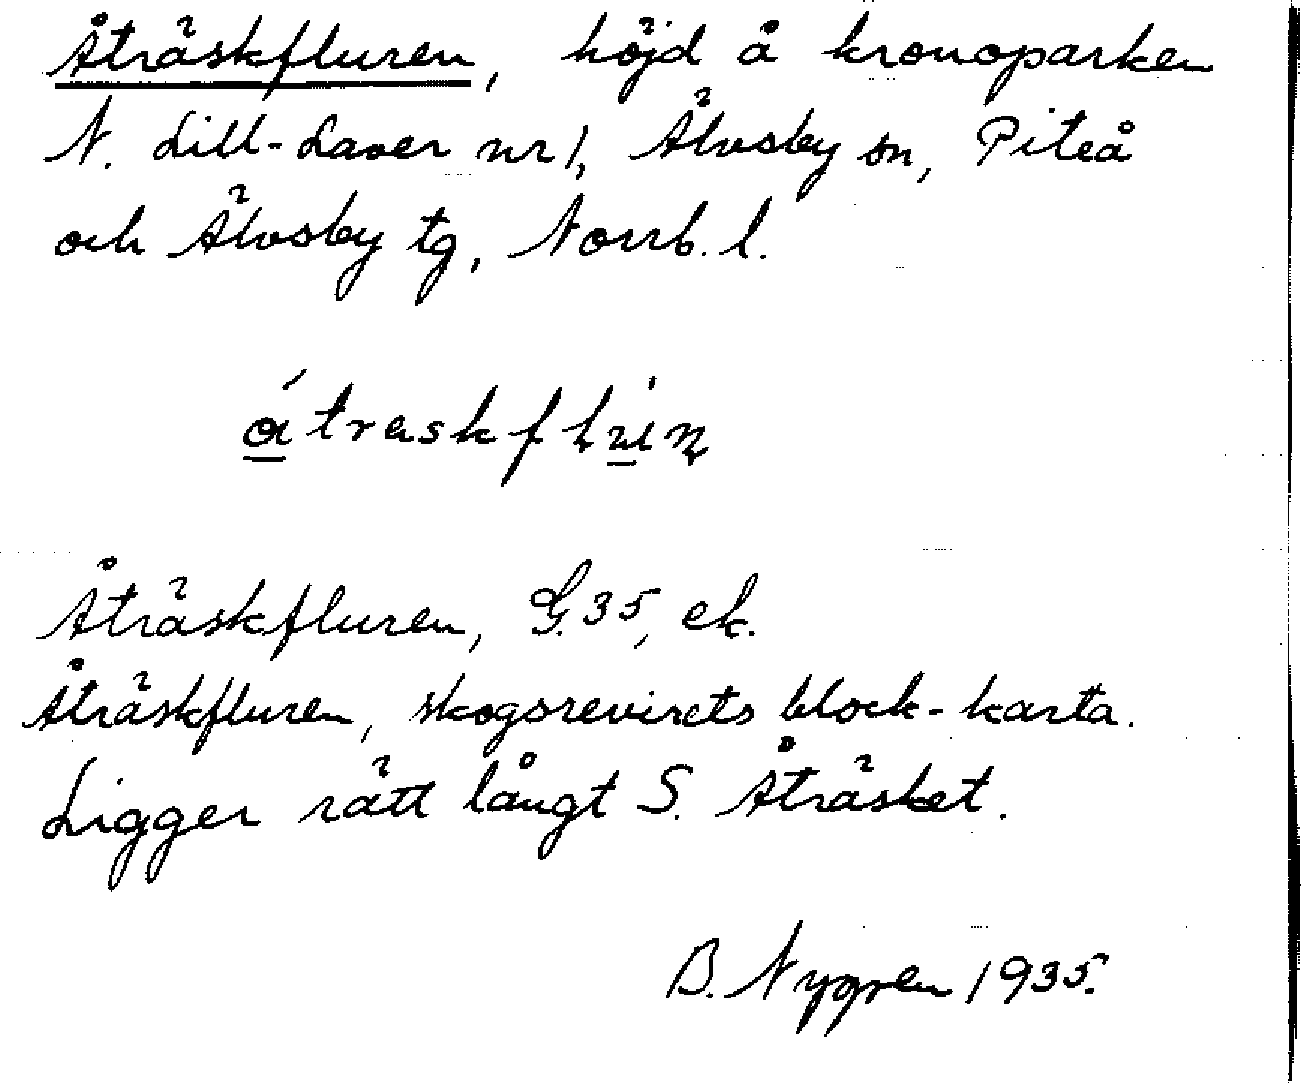 Åträskfluren, höjd å kronoparken
N. Lill-Laver nr 1, Älvsby sn, Piteå
och Älvsby tg, Norrb. l.
Åträskfluren, G. 35, ek.
Åträskfluren, skogsrevirets block-karta.
Ligger rätt långt S. Åträsket.
B. Nygren 1935.